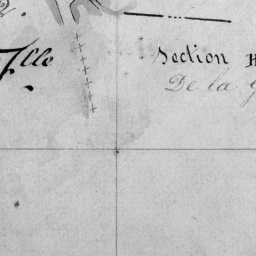 7lle
Section H
De la